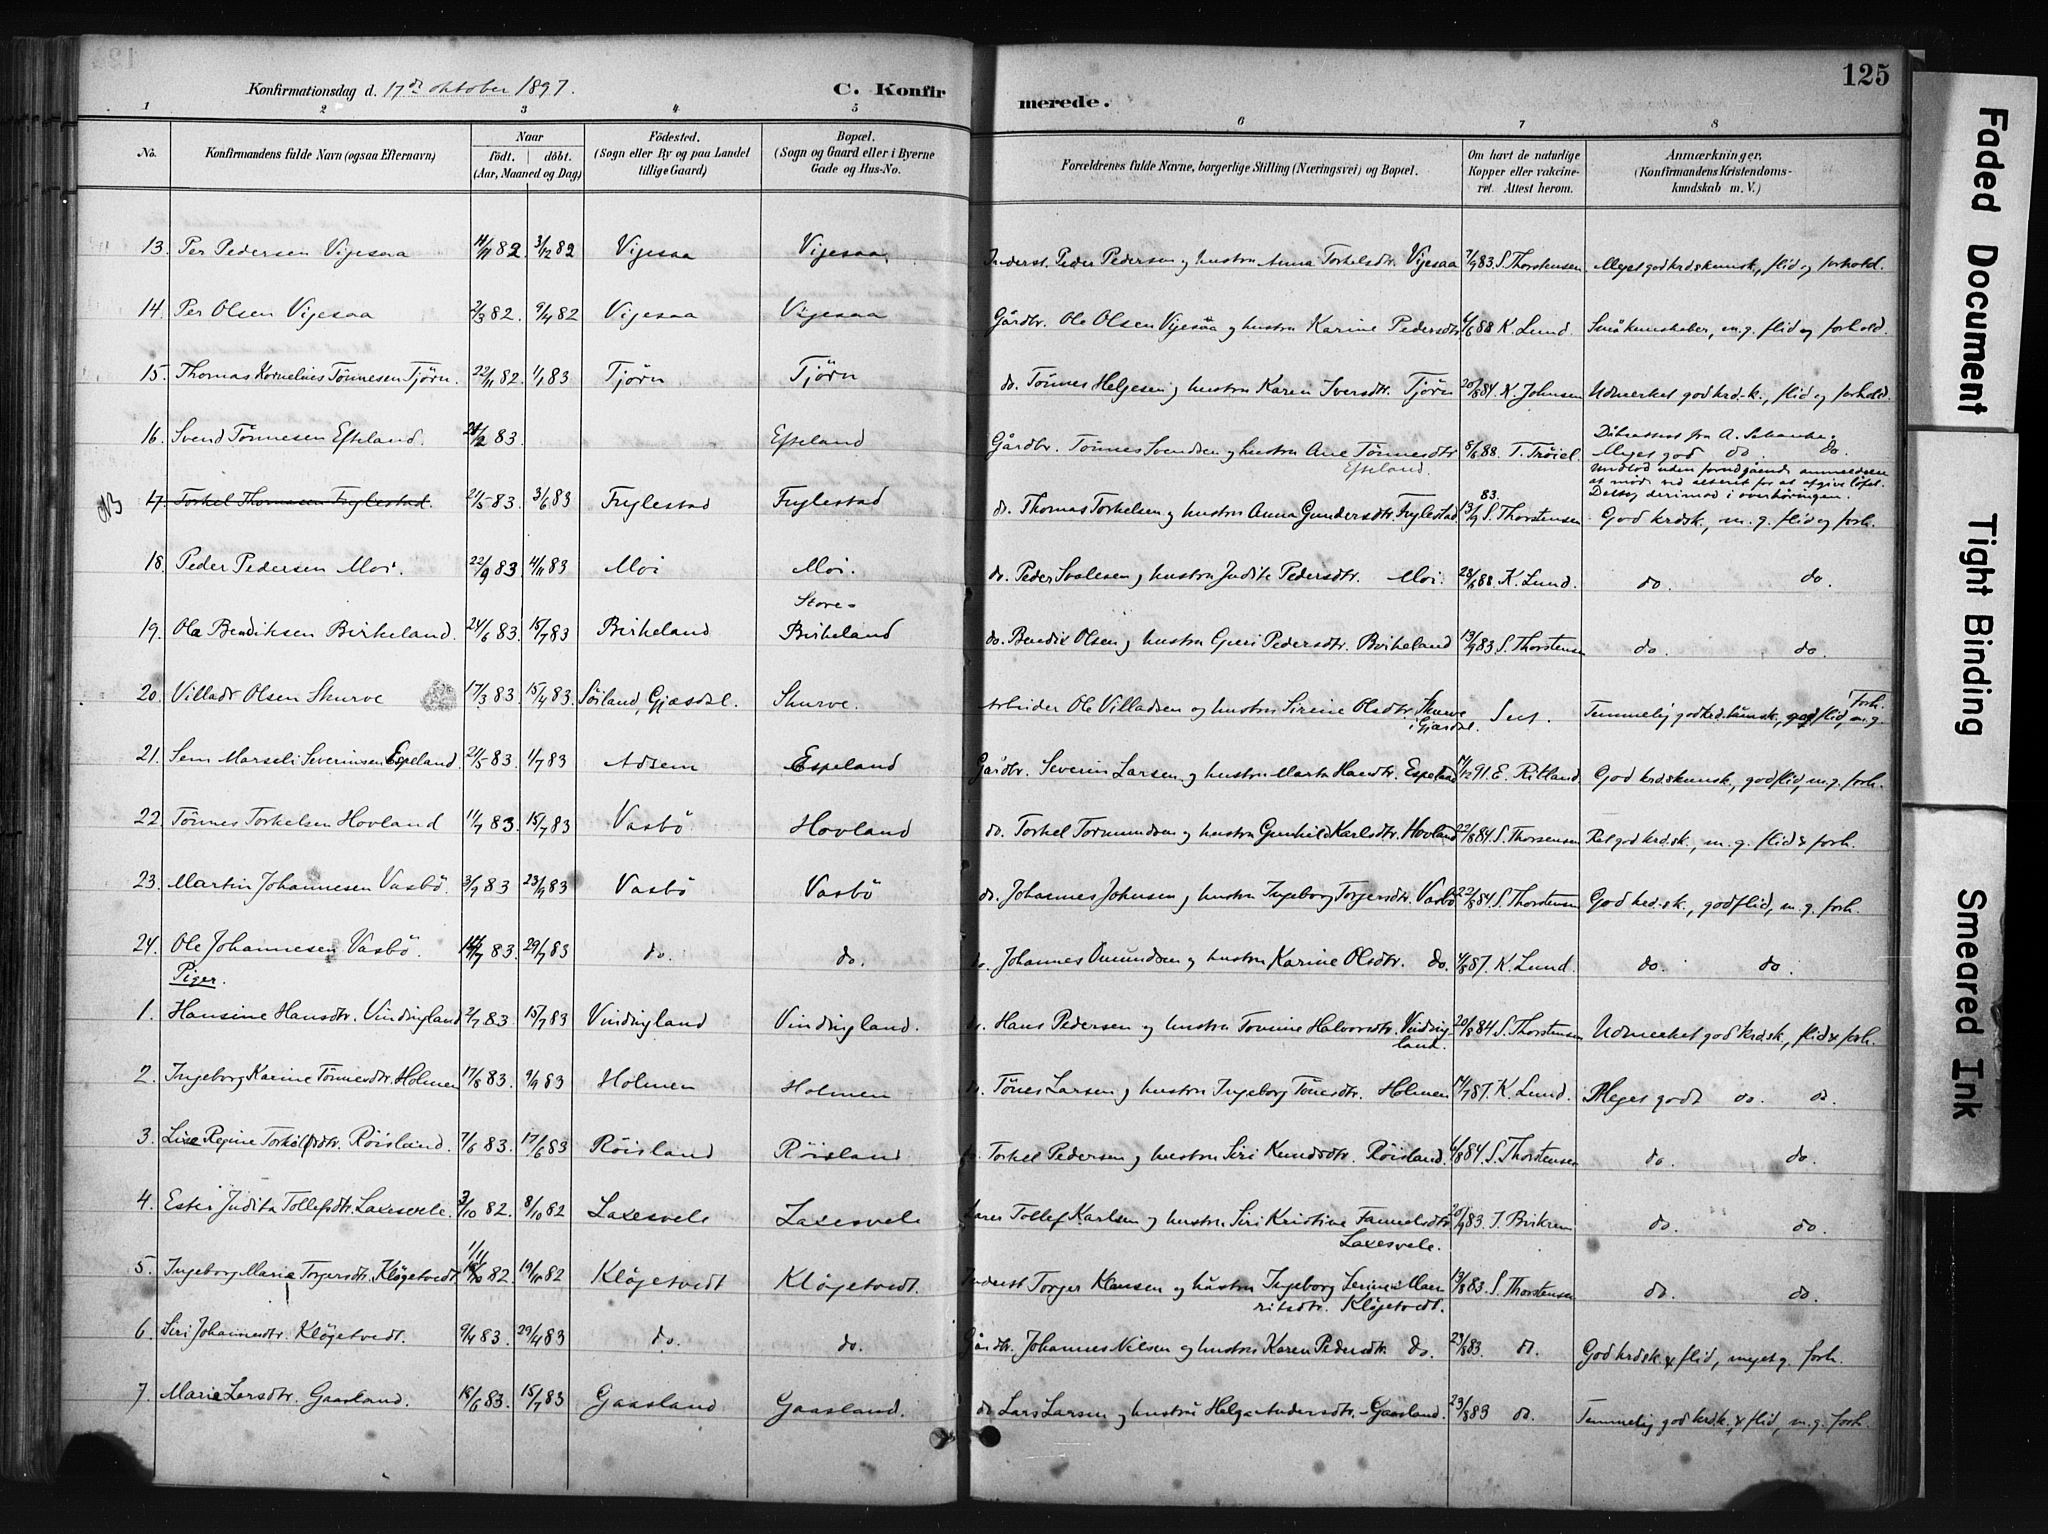 Konfirmationsdag d. 17de oktober 1897. C. Konfirmerede. 125
1 2 3 4 5 6 7 8
No. Konfirmandens fulde Navn (ogsaa Efternavn) Naar födt. döbt. (Aar, Maaned og Dag) Födested. (Sogn eller By og paa Landet tillige Gaard) Bopæl. (Sogn og Gaard eller i Byerne Gade og Hus-No. Forældrenes fulde Navne, borgerlige Stilling (Næringsvei) og Bopæl. Om havt de naturlige Kopper eller vakcineret. Attest herom. Anmærkninger. (Konfirmandens Kristendomskundskab m. V.)
13. Per Pedersen Vigesaa 82 3/12 82 Vigesaa Vigesaa Inderst. Peder Pedersen og hustru Anna Torkelsdtr. Vigesaa 7/9 83 S. Thorstensen Meget god krdskunsk., flid og forhold.
14. Per Olsen Vigesaa 2/3 82. 9/4 82 Vigesaa Vigesaa Gårdbr. Ole Olsen Vigesaa og hustru Karine Pedersdtr. 6/6 88 K. Lund. Små kunskaber, m.g. flid og forhold.
15. Thomas Kornelius Tönnesen Tjörn. 22/11 82. 1/1 83 Tjörn Tjörn do. Tönnes Helgesen og hustru Karen Iversdtr. Tjörn 20/8 84. K. Johnsen Udmerket god krd.k., flid og forhold.
16. Svend Tönnesen Efteland. 2 83. Efteland Gårdbr. Tönnes Svendsen og hustru Ane Tönnesdtr. Efteland. 8/6 88. T. Tröiel. Dåbsattest fra A. Meget god do do.
NB 17. Torkel Thomasen Fuglestad. 21/5 83 3/6 83 Fuglestad Fuglestad do. Thomas Torkelsen og hustru Anna Gundersdtr. Fuglestad 13/9 83. S. Thorstensen undlod uden forudgående anmeldelse at möde ved alteret for at afgive löftet. Deltog derimod i overhöringen. God krdsk., m.g. flid og forh.
18. Peder Pedersen Moi. 22/9 83. 4/11 83 Moi Moi. do. Peder Svalesen og hustru Judite Pedersdtr. Moi. 28/6 88. K. Lund. do do.
19. Ole Bendiksen Birkeland. 24/6 83. 15/7 83 Birkeland Store-Birkeland do. Bendix Olsen og hustru Guri Pedersdtr. Birkeland 13/9 83 S. Thorstensen do. do.
20. Villads Olsen Skurve 17/3 83. 15/4 83. Söiland, Gjæsdal. Skurve. Arbeider Ole Villadsen og hustru Sirine Olsdtr. Skurve i Gjæsdal. Temmelig god krd.kunsk., god flid, m.g. forh.
21. Sem Marseli Severinsen Espeland. 21/5 83. 1/7 83 Adsem Espeland Gårdbr. Severin Larsen og hustru Marta Hansdtr. Espeland 12 91. E. Ritland. God krdskunsk., god flid, m.g. forh.
22. Tönnes Torkelsen Hovland 11/7 83. 15/7 83 Vasbö Hovland do. Torkel Tormundsen og hustru Gunhild Karlsdtr. Hovland 22/8 84 S. Thorsensen Ret god krd.sk., m.g. flid & forh.
23. Martin Johannesen Vasbö. 3/9 83 23/9 83 Vasbö Vasbö do. Johannes Johnsen og hustru Ingeborg Torgersdtr. Vasbö 22/8 84 S. Thorstensen God krd.sk., god flid, m.g. forh.
24. Ole Johannesen Vasbö. 7 83. 29/7 83 do. do. do. Johannes Omundsen og hustru Karine Olsdtr. do. 4/8 87. K. Lund. do. do.
Piger.
1. Hansine Hansdtr. Vindingland 2/7 83 15/7 83 Vindingland Vindingland. do. Hans Pedersen og hustru Tomine Halvorsdtr. Vindingland. 20/8 84 S. Thorstensen Udmerket god krdsk., flid & forh.
2. Ingeborg Karine Tönnesdtr. Holmen 17/8 83. 9/9 83 Holmen Holmen do. Tönes Larsen og hustru Ingeborg Tönesdtr. Holmen 14/7 87. K. Lund. Meget godt do. do.
3. Lise Regine Torkelsdtr. Röisland. 7/6 83. 17/6 83 Röisland Röisland. do. Torkel Pedersen og hustru Siri Knudsdtr. Röisland. 6/8 84. S. Thorstensen do. do.
4. Ester Judita Tollefsdtr. Laxesvele. 3/10 82. 8/10 82 Laxesvele Laxesvele Lærer Tollef Karlsen og hustru Siri Kristine Samuelsdtr. Laxesvele. 20/9 83. J. Bvikrem do. do.
5. Ingeborg Maria Torgersdtr. Klögetvedt. 1/11 82 19/11 82 Klögetvedt Klögetvedt. Inderst Torger Klausen og hustru Ingeborg Serine Mauritsdtr. Klögetvedt. 13/8 83. S. Thorstensen do. do.
6. Siri Johannesdtr. Klögetvedt. 9/4 83. 29/4 83 do. do. Gårdbr. Johannes Nilsen og hustru Karen Pedersdtr. do. 23/8 83. do. God krdsk. & flid, meget g. forh.
7. Maria Larsdtr. Gaasland. 18/6 83. 15/7 83 Gaasland Gaasland. do Lars Larsen og hustru Helga Andersdtr. Gåsland. 23/8 83 do. Temmelig god krdsk. & flid, m.g. forh.
Faded Document
Tight Binding
Smeared Ink